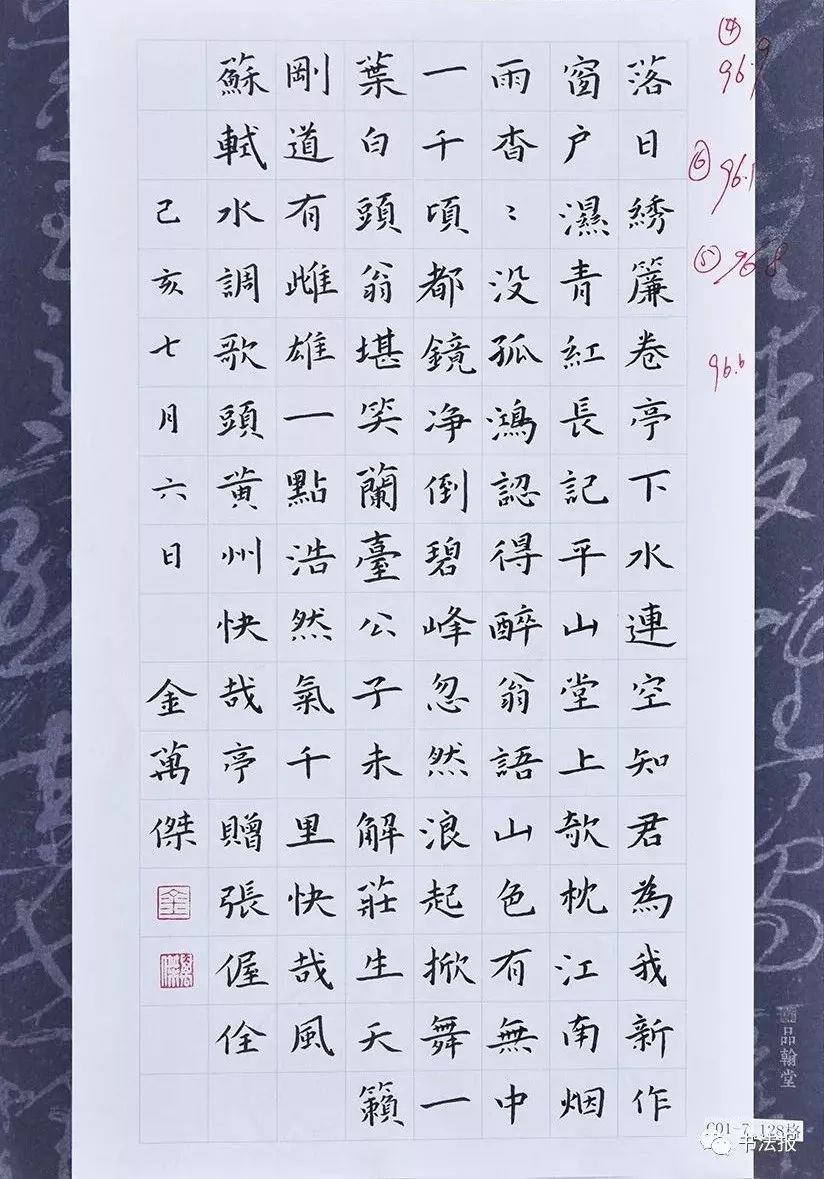 落日綉簾卷亭下水連空知君為我新作
窗户濕青紅長記平山堂上欹枕江南烟
雨杳〻没孤鴻認得醉翁語山色有無中
一千頃都鏡净倒碧峰忽然浪起掀舞一
葉白頭翁堪笑蘭臺公子未解莊生天籟
剛道有雌雄一點浩然氣千里快哉風
蘇軾水調歌頭黄州快哉亭贈張偓佺
己亥七月六日 金萬傑
④
96.9
⑥
96.1
⑤
96.8
96.6
品翰堂
C01-7 128格
书法报